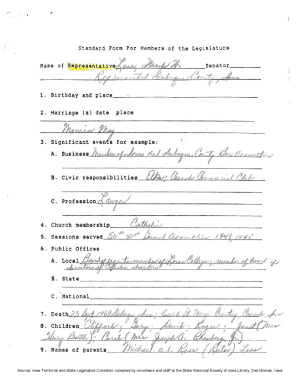 Standard Form For Members of the Legislature
Name of Representative Loes, Mark W. Senator
Represented Dubuque County, Iowa
1. Birthday and place
2. Marriage (s) date place
Monica May
3. Significant events for example:
A. Business Member of Iowa and Dubuque County Bar Association
B. Civic responsibilities Elks; Commercial Club
C. Profession Lawyer
4. Church membership Catholic
5. Sessions served 50th, 51st General Assemblies 1943, 1945
6. Public Offices
A. Local member of Loras College; member of board of
directors of Catholic charities
B. State
C. National
7. Death 23 Sept 1960 Dubuque, Iowa; County
8. Children Clifford; David; Roger; Janet (Mrs
Carol (Mrs Joseph C. Jr.)
9. Names of parents Michael and Rose Loes
Source: Iowa Territorial and State Legislators Collection compiled by volunteers and staff at the State Historical Society of Iowa Library, Des Moines, Iowa.